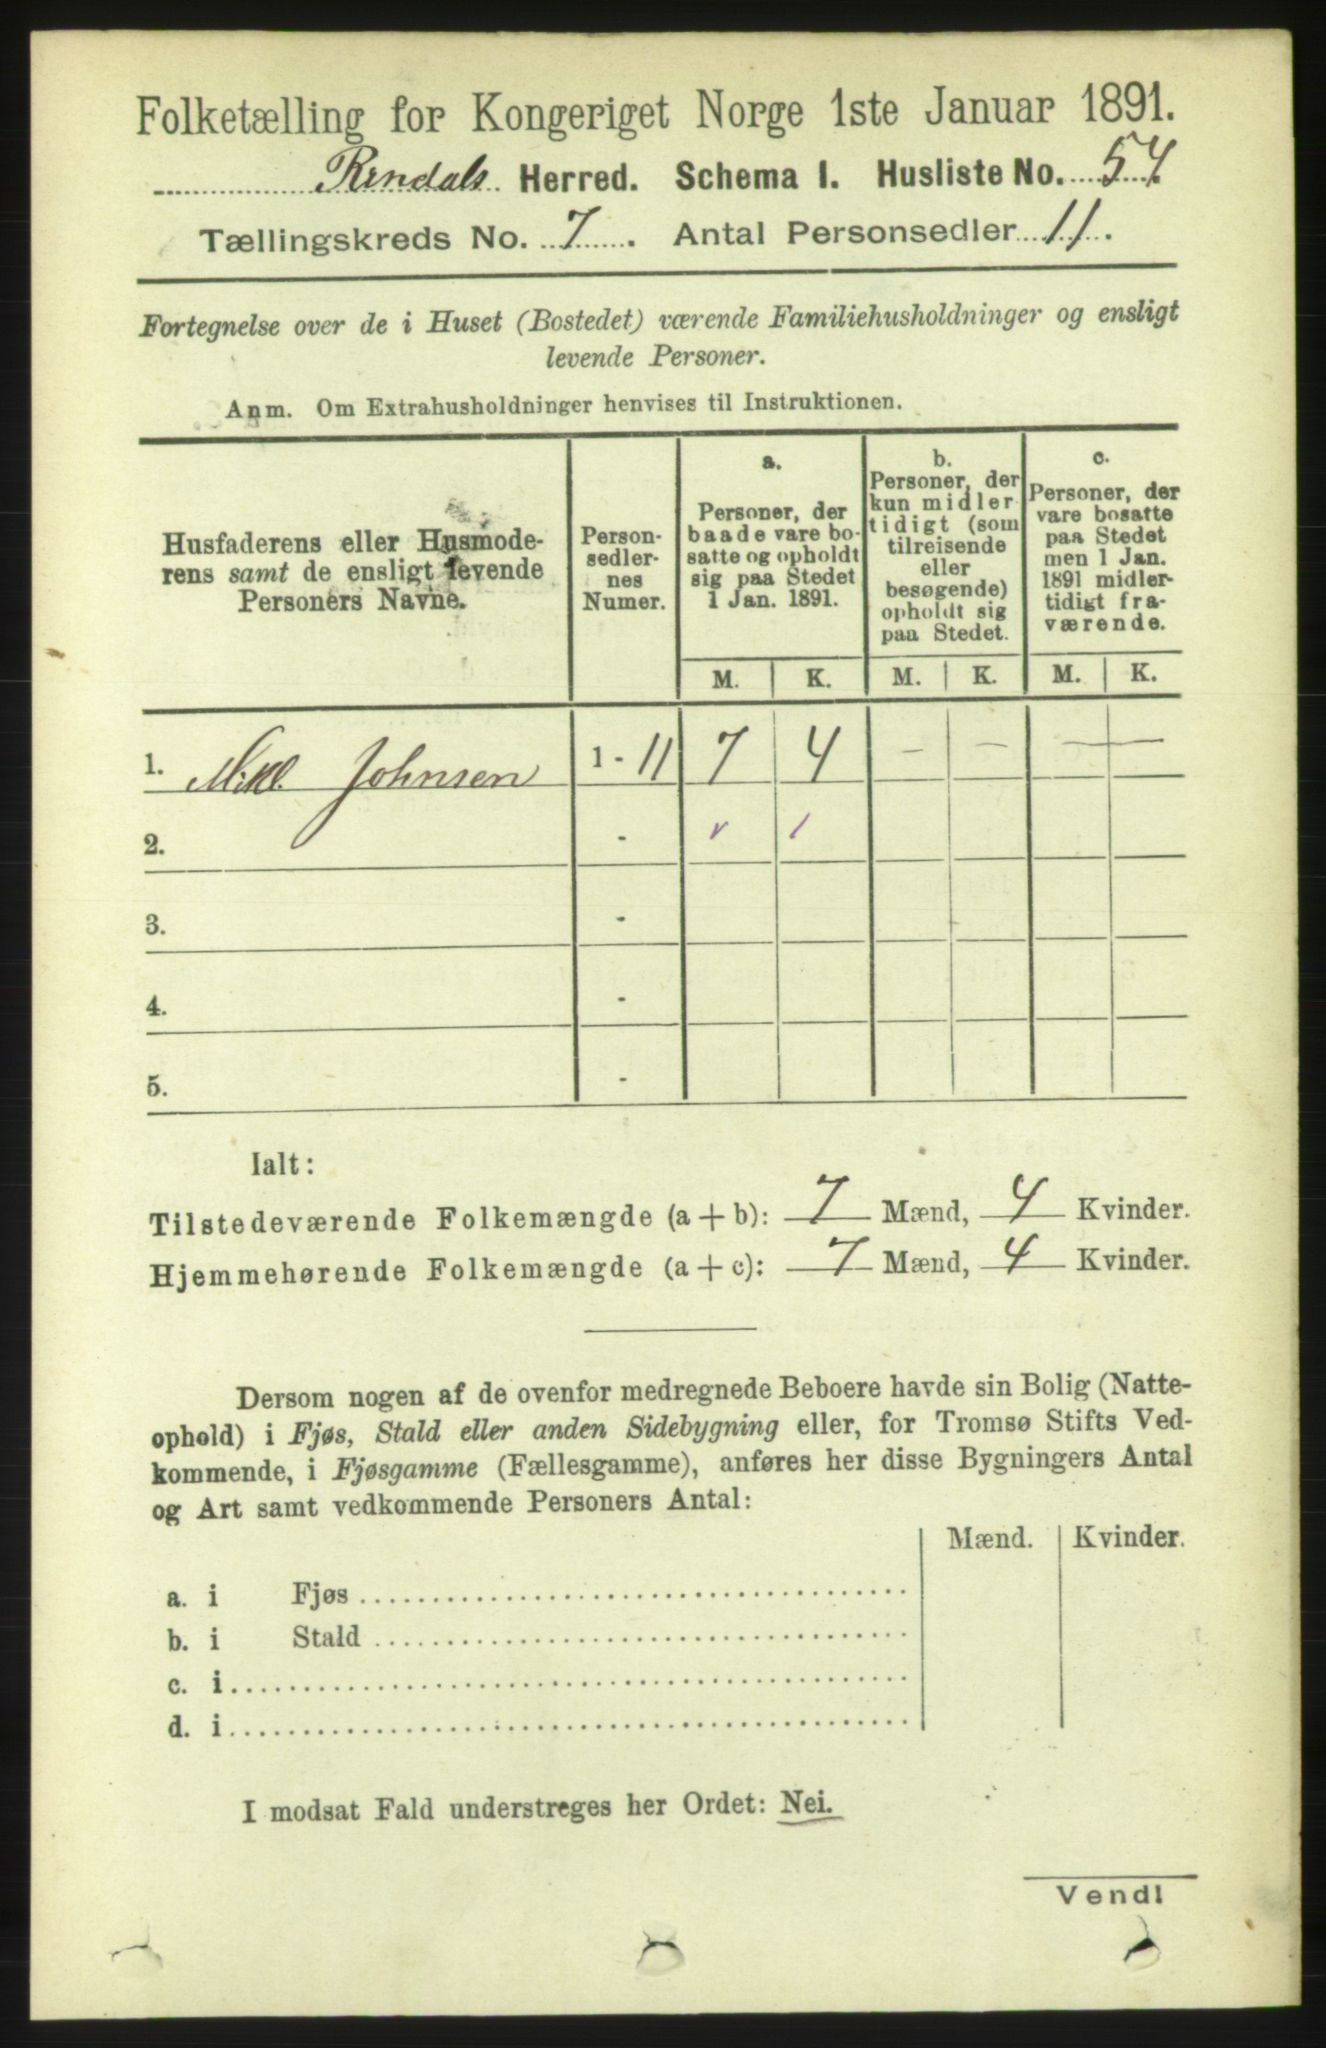 Folketælling for Kongeriget Norge 1ste Januar 1891.
Rendals Herred. Schema I. Husliste No. 54
Tællingskreds No. 7. Antal Personsedler 11.
Fortegnelse over de i Huset (Bostedet) værende Familiehusholdninger og ensligt
levende Personer.
Anm. Om Extrahusholdninger henvises til Instruktionen.
Husfaderens eller Husmode-
rens samt de ensligt levende
Personers Navne.
Person-
sedler-
nes
Numer.
a.
Personer, der
baade vare bo-
satte og opholdt
sig paa Stedet
1 Jan. 1891.
b.
Personer, der
kun midler-
tidigt (som
tilreisende
eller
besøgende)
opholdt sig
paa Stedet.
c.
Personer, der
vare bosatte
paa Stedet
men 1 Jan.
1891 midler-
tidigt fra-
værende.
M. K. M. K. M. K.
1. Mikl. Johnsen 1 - 11 7 4 — — — —
2. -
3. -
4. -
5. -
Ialt:
Tilstedeværende Folkemængde (a + b): 7 Mænd, 4 Kvinder.
Hjemmehørende Folkemængde (a + c): 7 Mænd, 4 Kvinder.
Dersom nogen af de ovenfor medregnede Beboere havde sin Bolig (Natte-
ophold) i Fjøs, Stald eller anden Sidebygning eller, for Tromsø Stifts Ved-
kommende, i Fjøsgamme (Fællesgamme), anføres her disse Bygningers Antal
og Art samt vedkommende Personers Antal:
Mænd. Kvinder.
a. i Fjøs
b. i Stald
c. i
d. i
I modsat Fald understreges her Ordet: Nei.
Vend!